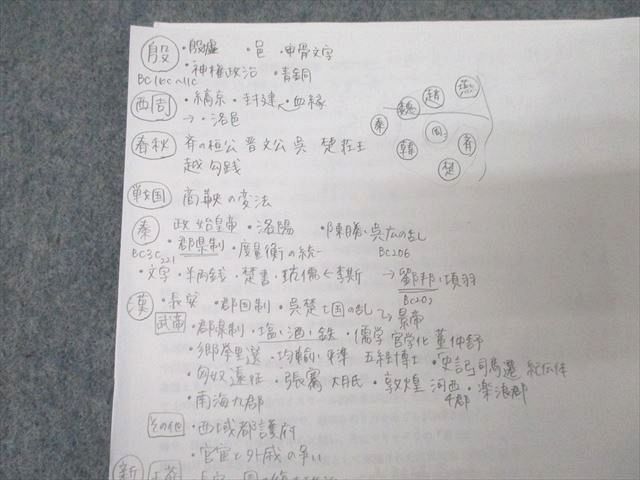 殷 ・殷墟 ・邑 ・甲骨文字
BC16C~11C ・神権政治 ・青銅
西周 ・鎬京 ・封建 ・血縁
→ ・洛邑
春秋 斉の桓公 晋文公 呉 楚荘王
越 勾践
燕
趙
魏
秦
周
韓
斉
楚
戦国 商鞅の変法
秦 政 始皇帝 ・洛陽 ・陳勝・呉広の乱
BC3C 221 ・郡県制 ・度量衡の統一 BC206
・文字 ・半両銭 ・焚書・坑儒 ← 李斯 → 劉邦・項羽
BC202
漢 ・長安 ・郡国制 ・呉楚七国の乱 → 景帝
武帝 ・郡県制 ・塩・酒・鉄 ・儒学 官学化 董仲舒
・郷挙里選 ・均輸・平準 五経博士 ・史記 司馬遷 紀伝体
・匈奴遠征 ・張騫 大月氏 ・敦煌 河西4郡 ・楽浪郡
・南海九郡
その他 ・西域都護府
・宦官と外戚の争い
新